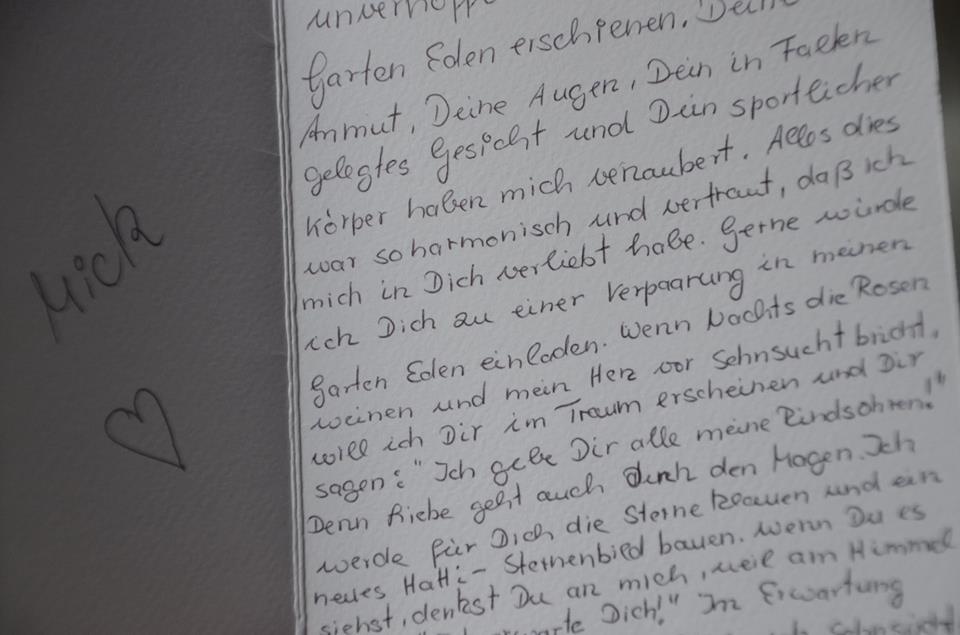 Mick
unverhoff
Garten Eden erschienen. Deine
Anmut, Deine Augen, Dein in Falten
gelegtes Gesicht und Dein sportlicher
Körper haben mich verzaubert. Alles dies
war so harmonisch und vertraut, daß ich
mich in Dich verliebt habe. Gerne würde
ich Dich zu einer Verpaarung in meinen
Garten Eden einladen. Wenn Nachts die Rosen
weinen und mein Herz vor Sehnsucht bricht,
will ich Dir im Traum erscheinen und Dir
sagen: "Ich gebe Dir alle meine Rindsohren!"
Denn Liebe geht auch durch den Magen. Ich
werde für Dich die Sterne klauen und ein
neues Hatti-Sternenbild bauen. Wenn Du es
siehst, denkst Du an mich, weil am Himmel
Dich!" In Erwartung
Sehnsucht